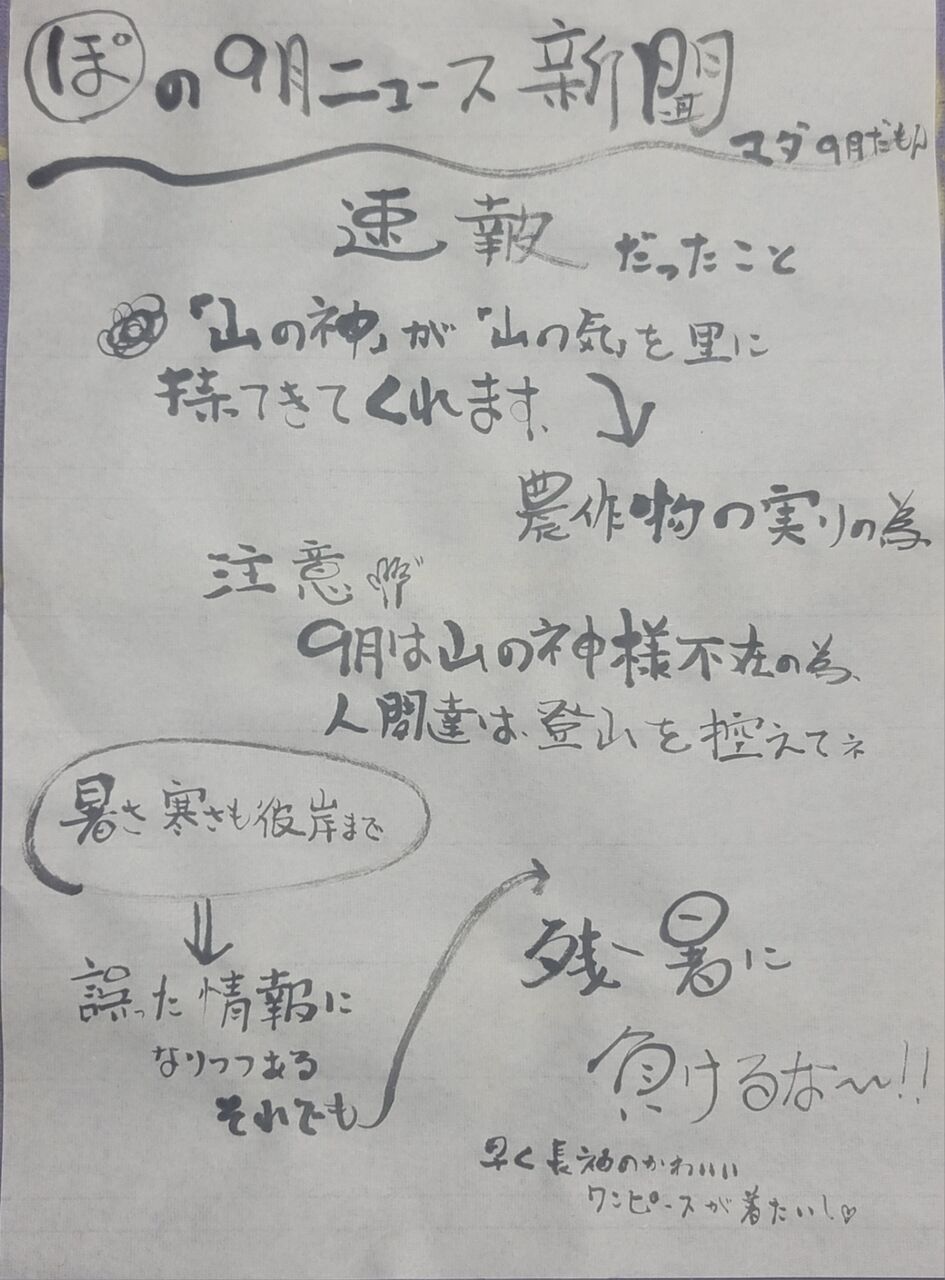 ぽの9月ニュース新聞
マダ9月だもん
速報だったこと
「山の神」が「山の気」を里に
持ってきてくれます。
農作物の実りの為
注意
9月は山の神様不在の為、
人間達は、登山を控えてネ
暑さ寒さも彼岸まで
誤った情報に
なりつつある
それでも
残暑に
負けるな〜!!
早く長袖のかわいい
ワンピースが着たいし♡